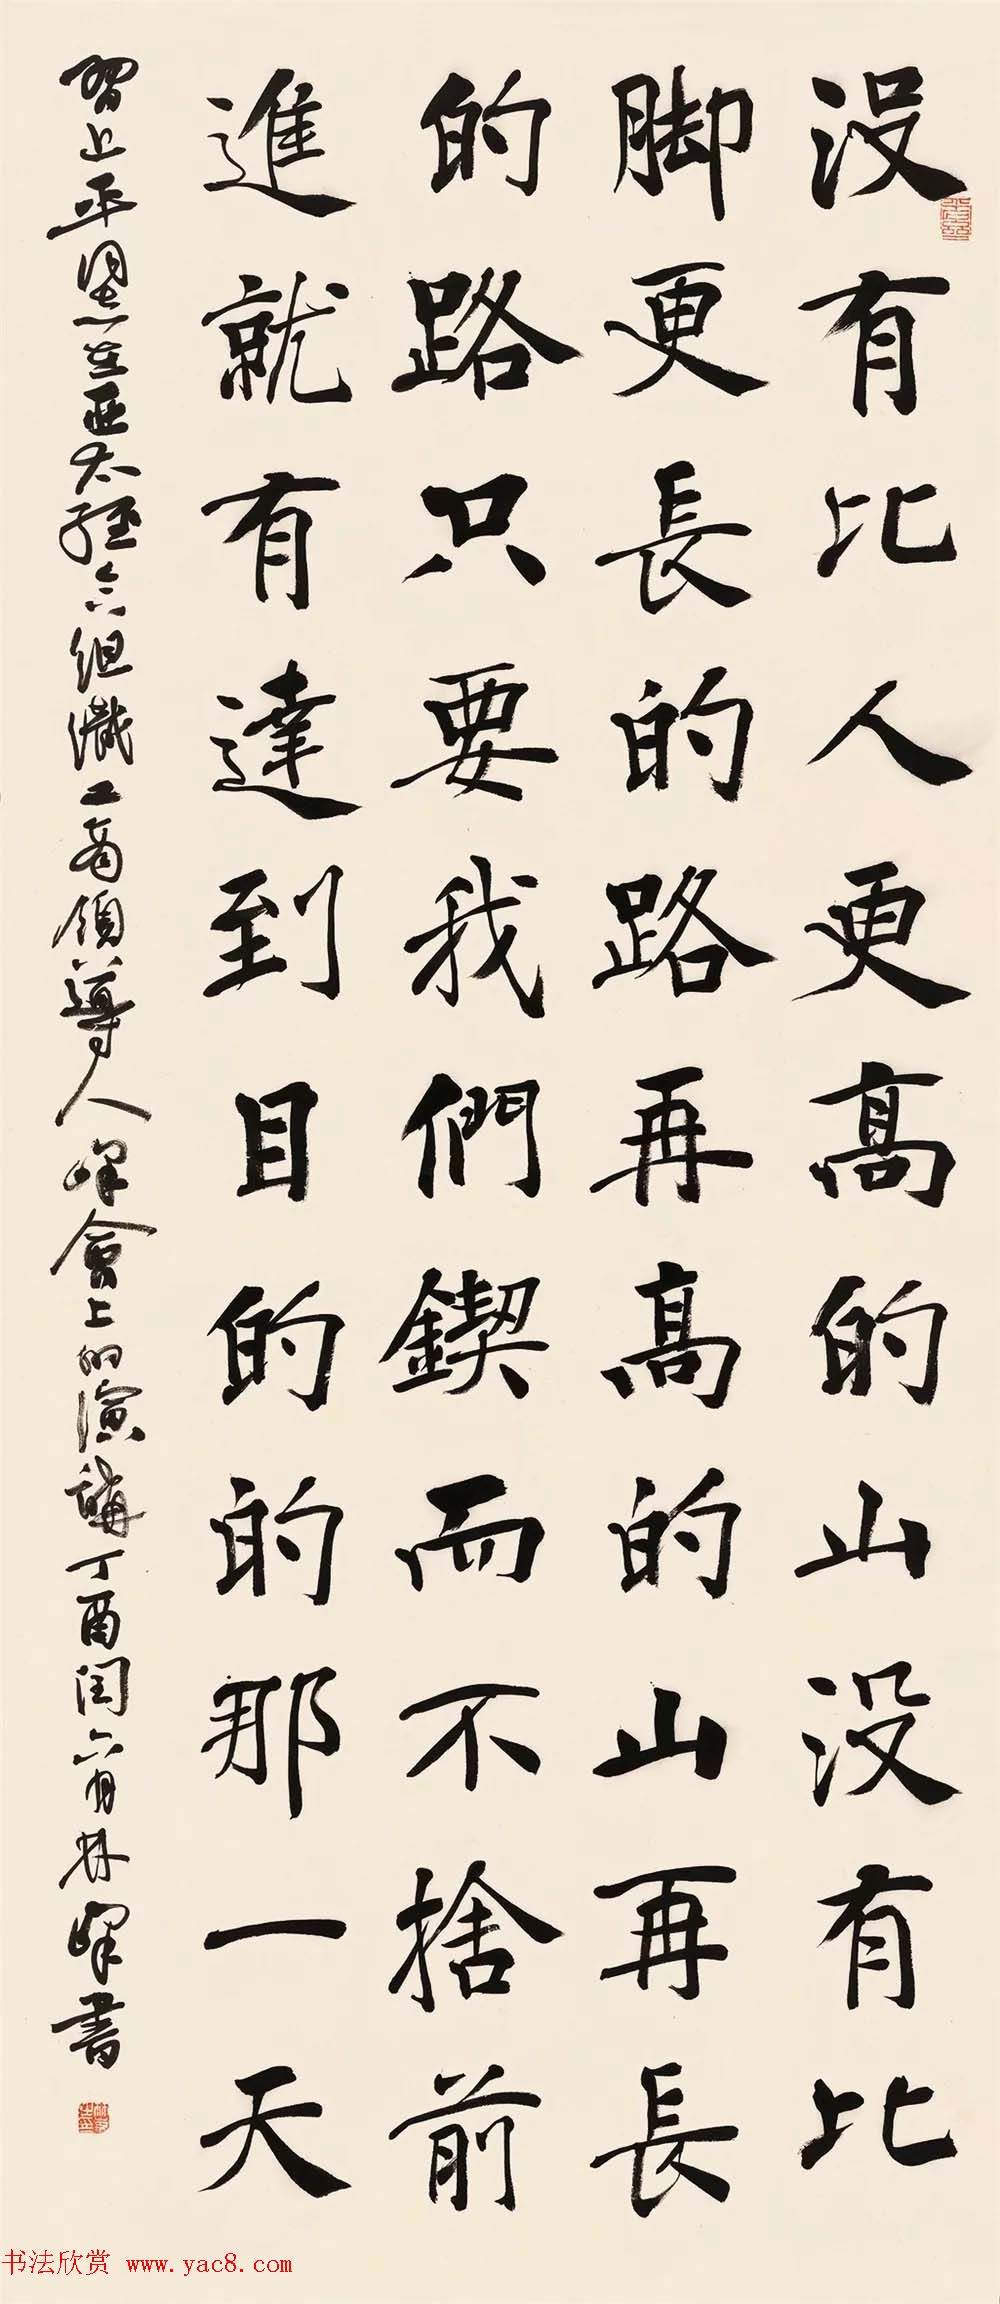 没有比人更高的山没有比
脚更長的路再高的山再長
的路只要我們鍥而不捨前
進就有達到目的的那一天
習近平同志在亞太經合組織工商領導人峰會上的演講丁酉闰六月林峰書
书法欣赏 www.yac8.com